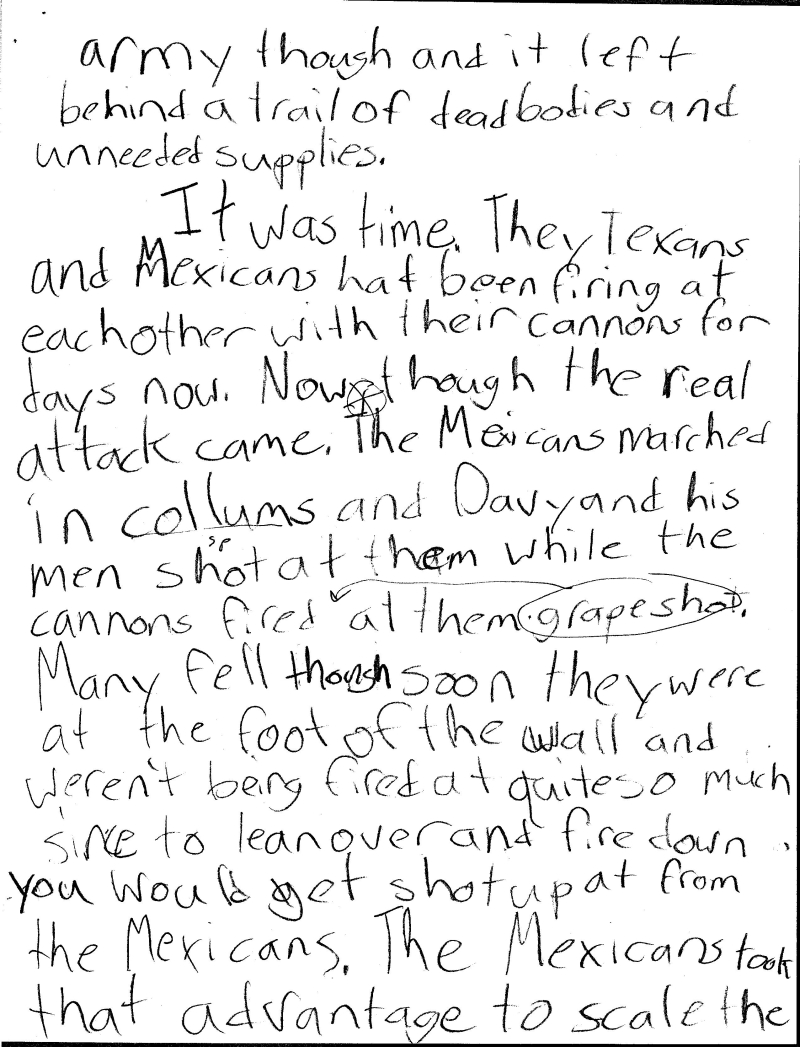 army though and it left
behind a trail of dead bodies and
unneeded supplies.
It was time. They Texans
and Mexicans had been firing at
eachother with their cannons for
days now. Now though the real
attack came. The Mexicans marched
in collums and Davy and his
sp
men shot at them while the
cannons fired at them grapeshot.
Many fell though soon they were
at the foot of the wall and
weren't being fired at quite so much
since to lean over and fire down
you would get shot up at from
the Mexicans. The Mexicans took
that advantage to scale the